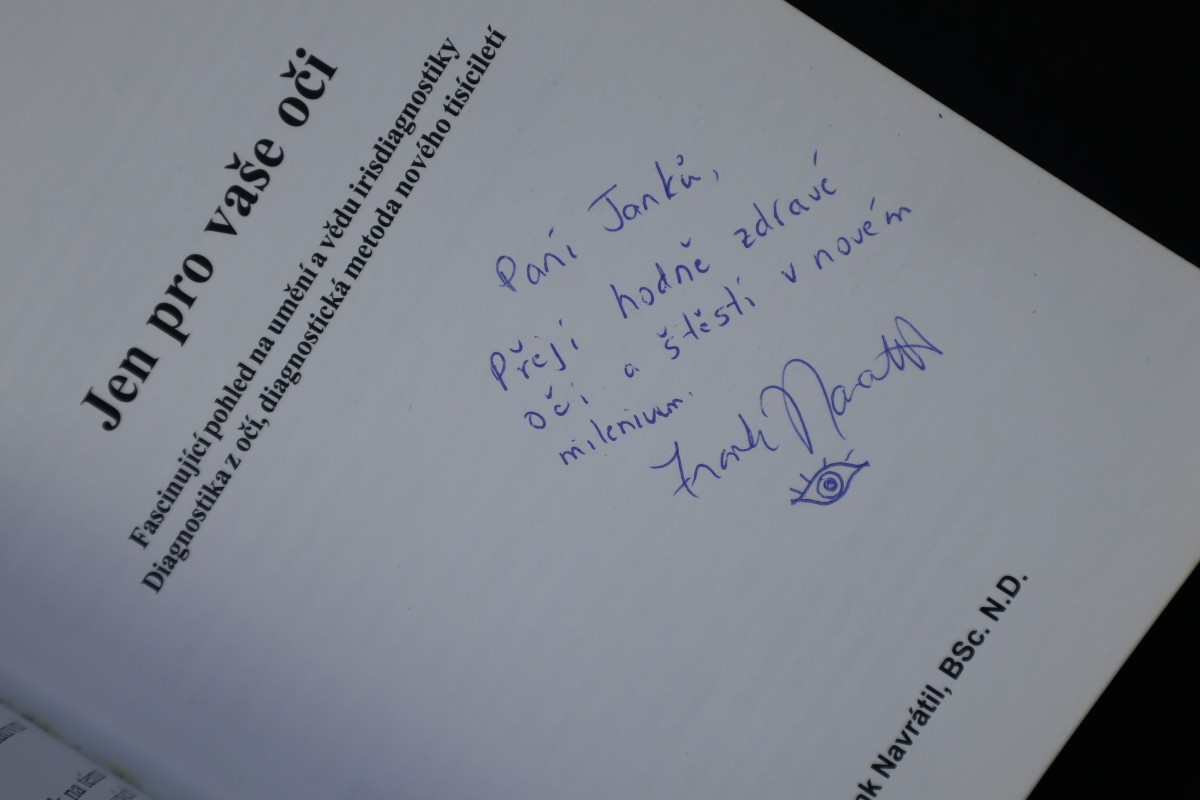 Jen pro vaše oči
Fascinující pohled na umění a vědu irisdiagnostiky
Diagnostika z očí, diagnostická metoda nového tisíciletí
Paní Janků,
Přeji hodně zdravé
oči a štěstí v novém
milenium.
Frank Navrátil
nk Navrátil, BSc. N.D.
na témi